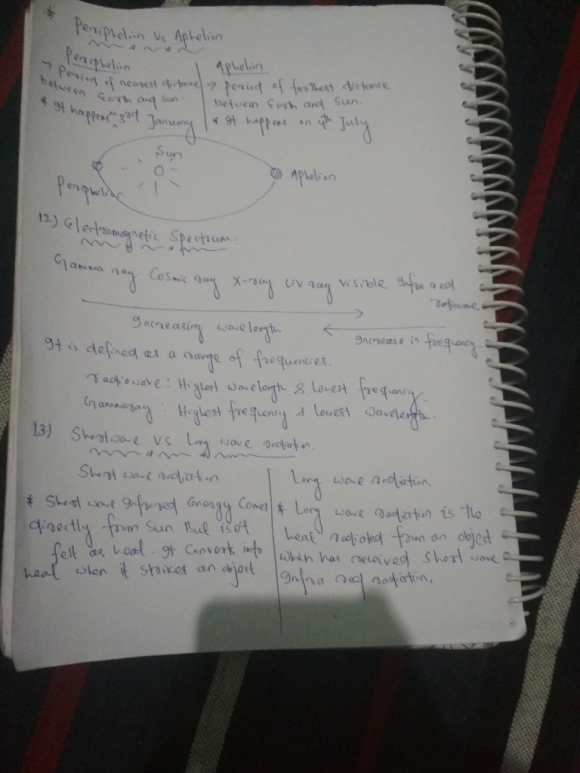 * Periphelion Vs Aphelion
Periphelion
→ Period of nearest distance
between Earth and sun.
* It happens 3rd January
Aphelion
→ period of farthest distance
between Earth and Sun.
* It happens on 4th July
Sun
Periphelion
Aphelion
12) Electromagnetic Spectrum.
Gamma ray Cosmic ray X-ray UV ray visible Infra red
radiowave
Increasing wavelength
Increase in frequency
It is defined as a range of frequencies.
radiowave : Highest wavelength & lowest frequency.
Gammaray : Highest frequency & lowest wavelength.
13) Shortwave VS Long wave radiation.
Short wave radiation
* Short wave Infrared energy comes
directly from sun But is not
felt as heat. It converts into
heat when it strikes an object
Long wave radiation.
* Long wave radiation is the
heat radiated from an object
which has received short wave
Infra red radiation.